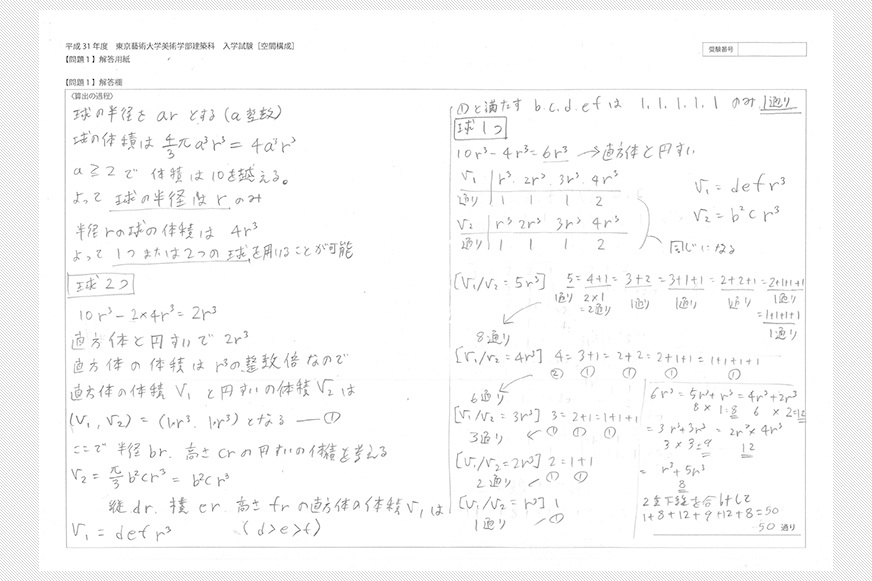 平成 31 年度 東京藝術大学美術学部建築科 入学試験［空間構成］
【問題 1】解答用紙
受験番号
【問題 1】解答欄
〈算出の過程〉
球の半径を ar とする (a整数)
球の体積は 4/3 π a³r³ = 4a³r³
a ≧ 2 で 体積は10を越える。
よって 球の半径は r のみ
半径rの球の体積は 4r³
よって 1つまたは2つの球を用いることが可能
球2つ
10r³ − 2×4r³ = 2r³
直方体と円すいで 2r³
直方体の体積は r³の整数倍なので
直方体の体積 V₁ と円すいの体積 V₂ は
(V₁, V₂) = (1・r³, 1・r³) となる ―①
ここで 半径 br, 高さ cr の円すいの体積を考える
V₂ = π/3 b²cr³ = b²cr³
縦 dr, 横 er, 高さ fr の直方体の体積 V₁ は
V₁ = def r³ (d>e>f)
①と満たす b.c.d.e.f は 1, 1, 1, 1, 1 のみ 1通り
球1つ
10r³ − 4r³ = 6r³ →直方体と円すい
V₁ r³ 2r³ 3r³ 4r³
通り 1 1 1 2
V₂ r³ 2r³ 3r³ 4r³
通り 1 1 1 2
V₁ = def r³
V₂ = b²c r³
同じになる
[V₁/V₂ = 5r³] 5 = 4+1 = 3+2 = 3+1+1 = 2+2+1 = 2+1+1+1
1通り 2×1=2通り 1通り 1通り 1通り 1通り
= 1+1+1+1
1通り
8通り
[V₁/V₂ = 4r³] 4 = 3+1 = 2+2 = 2+1+1 = 1+1+1+1
② ① ① ① ①
6通り
[V₁/V₂ = 3r³] 3 = 2+1 = 1+1+1
3通り ① ① ①
[V₁/V₂ = 2r³] 2 = 1+1
2通り ① ①
[V₁/V₂ = r³] 1
1通り ①
6r³ = 5r³ + r³ = 4r³ + 2r³
8 × 1 = 8 6 × 2 = 12
= 3r³ + 3r³ = 2r³ × 4r³
3 × 3 = 9 12
= r³ + 5r³
8
2重下線を合わせて
1+8+12+9+12+8 = 50
50 通り